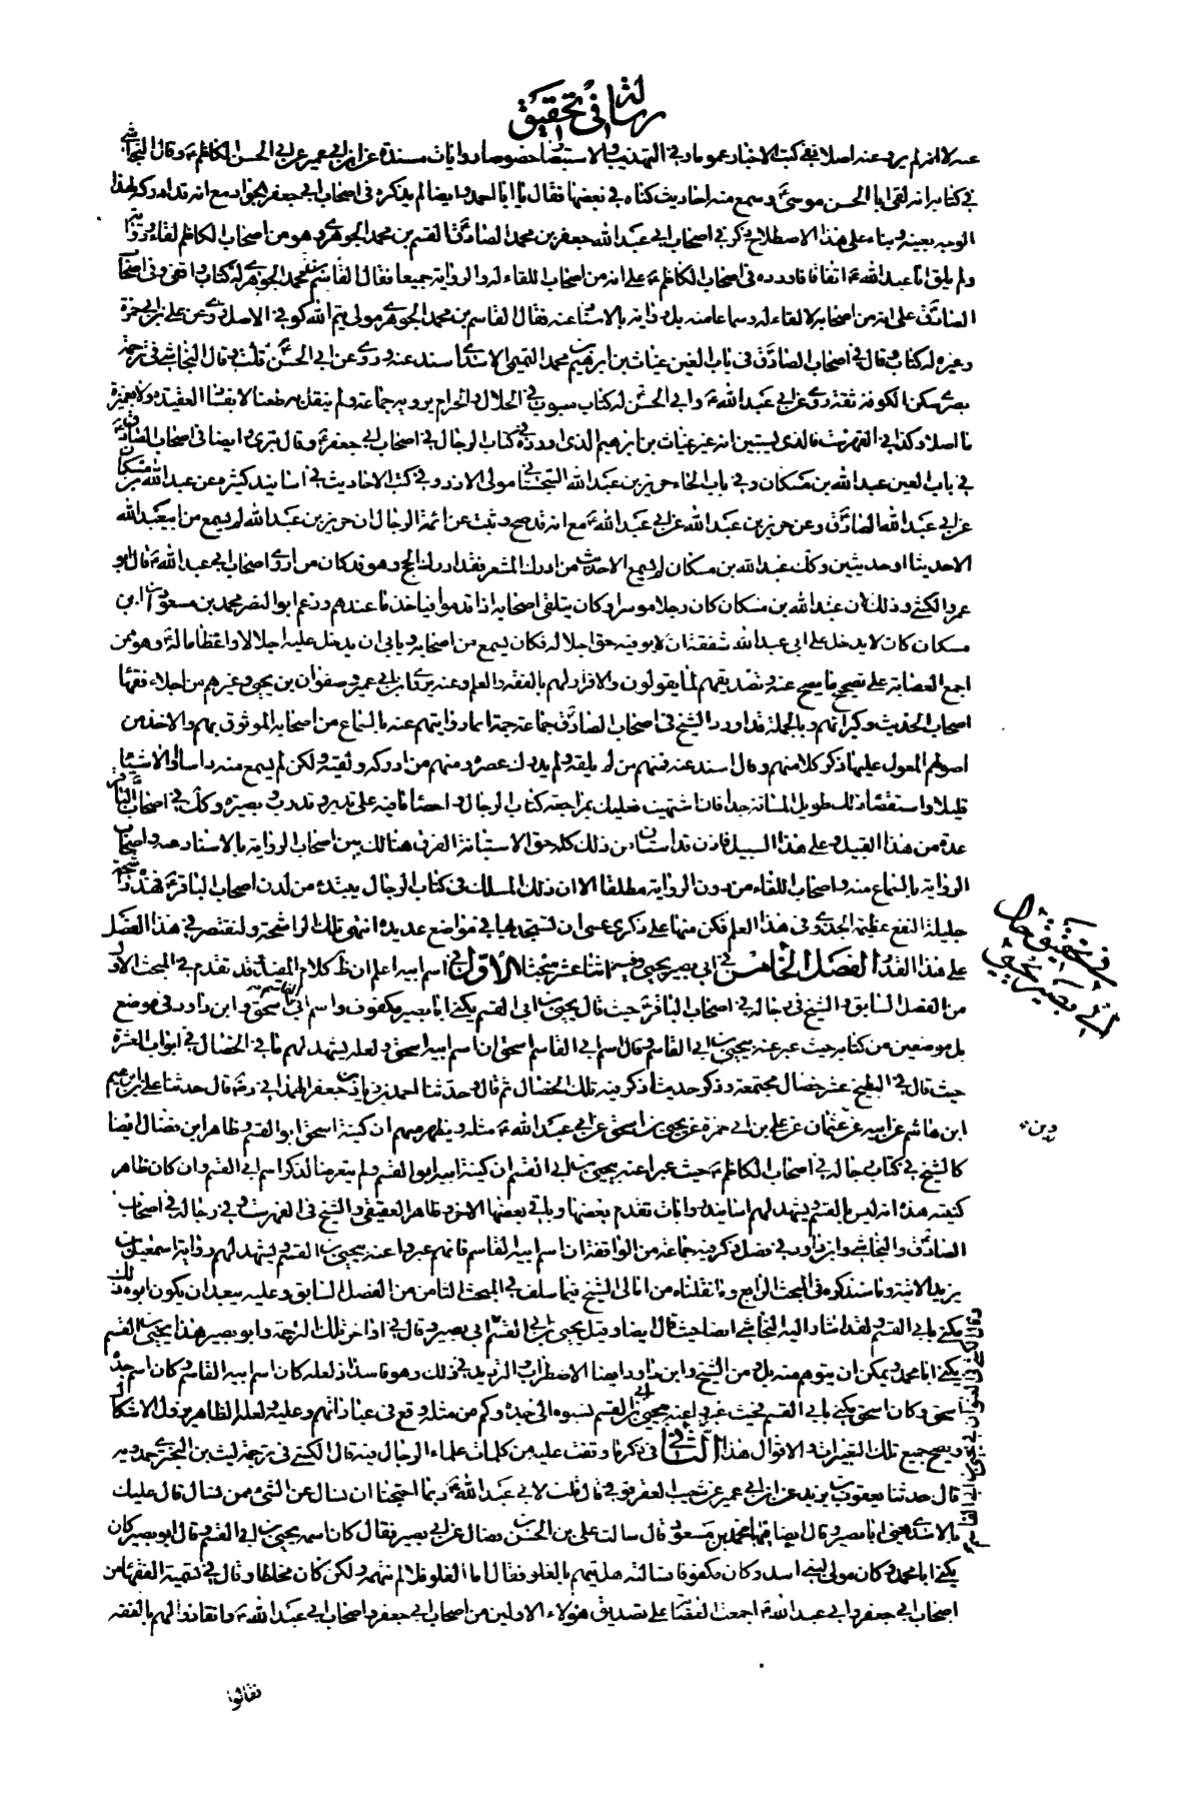 رسالة في تحقيق
عنه لا انه لم يرو عنه اصلا ففى كتب الاخبار عموما وفى التهذيب والاستبصار خصوصا روايات مسندة عن ابن ابى عمير عن ابى الحسن الكاظم ع وقال النجاشى
فى كتابه انه لقى ابا الحسن موسى ع وسمع منه احاديث كناه فى بعضها فقال يا ابا احمد وايضا لم يذكره فى اصحاب ابى جعفر الجواد مع انه قد ادركه لهذا
الوجه بعينه وبناء على هذا الاصطلاح ذكر فى اصحاب ابى عبد الله جعفر بن محمد الصادق القسم بن محمد الجوهرى وهو من اصحاب الكاظم لقاء ورواية
ولم يلق ابا عبد الله ع اتفاقا فاورده فى اصحاب الكاظم ع على انه من اصحاب اللقاء له والرواية جميعا فقال القاسم بن محمد الجوهرى له كتاب واقفى وفى اصحاب
الصادق على انه من اصحابه لا لقاء له وسماعا منه بل رواية بالاسناد عنه فقال القاسم بن محمد الجوهرى مولى تيم الله كوفى الاصل روى عن على بن ابى حمزة
وغيره له كتاب وقال فى اصحاب الصادق فى باب الغين غياث بن ابرهيم محمد التميمى الاسدى اسند عنه وروى عن ابى الحسن ع قلت وقال النجاشى فى ترجمته
بصرى سكن الكوفة ثقة روى عن ابى عبد الله ع وابى الحسن له كتاب مبوب فى الحلال والحرام يرويه جماعة ولم ينقل
ما اصلا وكذا فى الفهرست فالذى يستبين انه غير غياث بن ابرهيم الذى اورده فى كتاب الرجال فى اصحاب ابى جعفر ع وقال بترى وايضا فى اصحاب الصادق
فى باب العين عبد الله بن مسكان وفى باب الحاء حريز بن عبد الله السجستانى مولى الازد وفى كتب الاحاديث فى اسانيد كثيرة عن عبد الله بن مسكان
عن ابى عبد الله الصادق وعن حريز بن عبد الله عن ابى عبد الله ع مع انه قد صح وثبت عن ائمة الرجال ان حريز بن عبد الله لم يسمع من ابيعبد الله
الا حديثا او حديثين وكك عبد الله بن مسكان لم يسمع الا حديث من ادرك المشعر فقد ادرك الحج وهو قد كان من اروى اصحاب ابى عبد الله ع قال ابو
عمرو الكشى وذلك ان عبد الله بن مسكان كان رجلا موسرا وكان يتلقى اصحابه اذا قدموا فياخذ ما عندهم وزعم ابو النضر محمد بن مسعود ان ابن
مسكان كان لا يدخل على ابى عبد الله شفقة ان لا يوفيه حق اجلاله فكان يسمع من اصحابه ويابى ان يدخل عليه اجلالا واعظاما له ع وهو ممن
اجمع العصابة على تصحيح ما يصح عنه وتصديقهم لما يقولون والاقرار لهم بالفقه والعلم وعنه يروى ابن ابى عمير وصفوان بن يحيى وغيرهم من اجلاء فقهاء
اصحاب الحديث وكبرائهم وبالجملة قد اورد الشيخ فى اصحاب الصادق جماعة جمة انما روايتهم عنه بالسماع من اصحابه الموثوق بهم والاخذ من
اصولهم المعول عليها ذكر كلا منهم وقال اسند عنه فمنهم من لم يلقه ولم يدرك عصره ومنهم من ادركه ولقيه ولكن لم يسمع منه راسا او الا شيئا
قليلا واستقصاء ذلك طويل المسافة جدا فان اشتهيت فعليك بمراجعة كتاب الرجال واحصاء ما فيه على تدبر وتدرب وبصيرة وكك فى اصحاب الباقر
عدة من هذا القبيل وعلى هذا السبيل فاذن قد استبان من ذلك كله حق الاستبانة الفرق هنالك بين اصحاب الرواية بالاسناد عنه واصحاب
الرواية بالسماع منه واصحاب اللقاء من دون الرواية مطلقا الا ان ذلك المسلك فى كتاب الرجال يبتدء من لدن اصحاب الباقر ع فهذه راشحة
جليلة النفع عظيمة الجدوى فى هذا العلم فكن منها على ذكرى عسى ان تستجديها فى مواضع عديدة انتهى تلك الراشحة ولنقتصر فى هذا الفصل
على هذا القدر الفصل الخامس فى ابى بصير يحيى وفيه اثنا عشر مبحثا الاول فى اسم ابيه اعلم ان ظ كلام المفيد قد تقدم فى المبحث الاول
من الفصل السابق والشيخ فى رجاله فى اصحاب الباقر ع حيث قال يحيى بن ابى القسم يكنى ابا بصير مكفوف واسم ابى القاسم اسحق وابن داود فى موضع
بل موضعين من كتابه حيث عبر عنه بيحيى بن ابى القاسم وقال اسم ابى القاسم اسحق ان اسم ابيه اسحق ولعله يشهد لهم ما فى الخصال فى ابواب العشرة
حيث قال فى البطيخ عشر خصال مجتمعة وذكر حديثا ذكر فيه تلك الخصال ثم قال وحدثنا احمد بن زياد بن جعفر الهمدانى رضه قال حدثنا على بن ابرهيم
ابن هاشم عن ابيه عن عثمان عن على بن ابى حمزة عن يحيى بن اسحق عن ابى عبد الله ع مثله ويظهر منهم ان كنية اسحق ابو القسم وظاهر ابن فضال ايضا
كالشيخ فى كتابى رجاله فى اصحاب الكاظم ع حيث عبرا عنه بيحيى بن ابى القسم ان كنية ابيه ابو القسم ولم يتعرضا لذكر اسم ابى القسم وان كان ظاهر
كنيته هذه انه ليس بالقسم ويشهد لهم اسانيد روايات تقدم بعضها وياتى بعضها الاخر وظاهر العقيقى والشيخ فى الفهرست وفى رجاله فى اصحاب
الصادق والنجاشى وابن داود فى فصل ذكر فيه جماعة من الواقفة ان اسم ابيه القاسم فانهم عبروا عنه بيحيى بن القسم ويشهد لهم رواية اسمعيل بن
يزيد الاتية وما سنذكره فى المبحث الرابع وما نقلناه من امالى الشيخ فيما سلف فى المبحث الثامن من الفصل السابق وعليه يبعد ان يكون ابوه ذلك
يكنى بابى القسم ولقد اشار اليه النجاشى ايضا حيث قال ايضا وقيل يحيى بن ابى القسم ابى بصير وقال فى اواخر تلك الترجمة وابو بصير هذا يحيى بن القسم
يكنى ابا محمد ويمكن ان يتوهم منه بل ومن الشيخ وابن داود ايضا الاضطراب والترديد فى ذلك وهو فاسد اذ لعله كان اسم ابيه القاسم وكان اسم جده
اسحق وكان اسحق يكنى بابى القسم فحيث عبروا عنه بيحيى بن ابى القسم نسبوه الى جده وكم من مثله وقع فى عباراتهم وعليه ولعله الظاهر يزول الاشكال
ويصح جميع تلك التعبيرات والاقوال هذا الثانى فى ذكر ما وقفت عليه من كلمات علماء الرجال فيه قال الكشى فى ترجمة ليث بن البخترى حمدويه
قال حدثنا يعقوب بن يزيد عن ابن ابى عمير عن شعيب العقرقوفى قال قلت لابى عبد الله ع ربما احتجنا ان نسال عن الشىء فمن نسال قال عليك
بالاسدى يعنى ابا بصير وقال ايضا فيها محمد بن مسعود قال سالت على بن الحسن بن فضال عن ابى بصير فقال كان اسمه يحيى بن ابى القسم وقال ابو بصير كان
يكنى ابا محمد وكان مولى لبنى اسد وكان مكفوفا فسالته هل يتهم بالغلو فقال اما الغلو فلا لم يتهم ولكن كان مخلطا وقال فى تسمية الفقهاء من
اصحاب ابى جعفر وابى عبد الله ع اجمعت العصابة على تصديق هؤلاء الاولين من اصحاب ابى جعفر واصحاب ابى عبد الله ع وانقادوا لهم بالفقه
فقالوا
فى تحقيق حال
ابى بصير يحيى